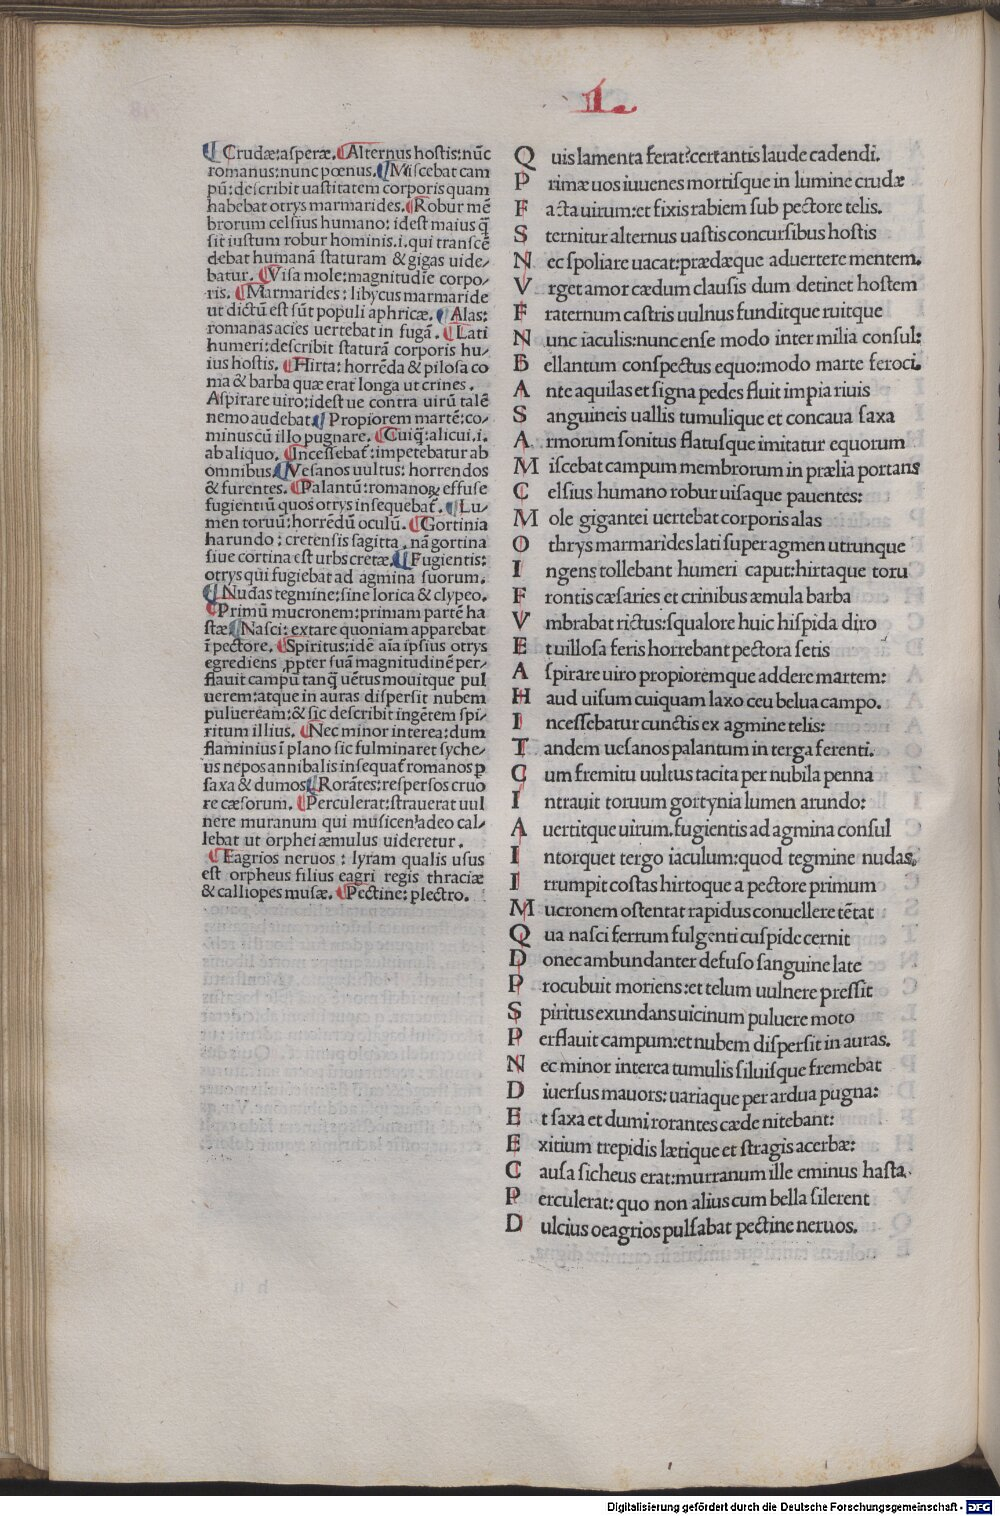 L
¶ Crudæ: asperæ. ¶ Alternus hostis: nũc
romanus: nunc pœnus. ¶ Miscebat cam
pũ: describit uastitatem corporis quam
habebat otrys marmarides. ¶ Robur mẽ
brorum celsius humano: idest maius q̃
sit iustum robur hominis .i. qui transcẽ
debat humanã staturam & gigas uide/
batur. ¶ Visa mole: magnitudĩe corpo/
ris. ¶ Marmarides: libycus marmaride
ut dictũ est sũt populi aphricæ. ¶ Alas:
romanas acies uertebat in fugã. ¶ Lati
humeri: describit staturã corporis hu/
ius hostis. ¶ Hirta: horrẽda & pilosa co
ma & barba quæ erat longa ut crines.
Aspirare uiro: idest ue contra uirũ talẽ
nemo audebat ¶ Propiorem martẽ: co/
minus cũ illo pugnare. ¶ Cuiq̃: alicui .i.
ab aliquo. ¶ Incessebat̃: impetebatur ab
omnibus ¶ Vesanos uultus: horrendos
& furentes. ¶ Palantũ: romanoꝝ effuse
fugientiũ quos otrys insequebat̃. ¶ Lu/
men toruũ: horrẽdũ oculũ. ¶ Gortinia
harundo: cretensis sagitta. nã gortina
siue cortina est urbs cretæ. ¶ Fugientis:
otrys qui fugiebat ad agmina suorum.
¶ Nudas tegmine: sine lorica & clypeo.
¶ Primũ mucronem: primam partẽ ha
stæ ¶ Nasci: extare quoniam apparebat
ĩ pectore. ¶ Spiritus: idẽ aĩa ipsius otrys
egrediens ꝓpter suã magnitudinẽ per/
flauit campũ tanq̃ uẽtus mouitque pul
uerem: atque in auras dispersit nubem
pulueream: & sic describit ingẽtem spi/
ritum illius. ¶ Nec minor interea: dum
flaminius ĩ plano sic fulminaret syche/
us nepos annibalis insequat̃ romanos ꝑ
saxa & dumos ¶ Rorãtes: respersos cruo
re cæsorum. ¶ Perculerat: strauerat uul
nere muranum qui musicen adeo cal/
lebat ut orphei æmulus uideretur.
¶ Eagrios neruos: lyram qualis usus
est orpheus filius eagri regis thraciæ
& calliopes musæ. ¶ Pectine: plectro.
Q uis lamenta ferat? certantis laude cadendi.
P rimæ uos iuuenes mortisque in lumine crudæ
F acta uirum: et fixis rabiem sub pectore telis.
S ternitur alternus uastis concursibus hostis
N ec spoliare uacat: prædæque aduertere mentem.
V rget amor cædum clausis dum detinet hostem
F raternum castris uulnus funditque ruitque
N unc iaculis: nunc ense modo inter milia consul:
B ellantum conspectus equo: modo marte feroci.
A nte aquilas et signa pedes fluit impia riuis
S anguineis uallis tumulique et concaua saxa
A rmorum sonitus flatusque imitatur equorum
M iscebat campum membrorum in prælia portans
C elsius humano robur uisaque pauentes:
M ole gigantei uertebat corporis alas
O thrys marmarides lati super agmen utrunque
I ngens tollebant humeri caput: hirtaque toru
F rontis cæsaries et crinibus æmula barba
V mbrabat rictus: squalore huic hispida diro
E t uillosa feris horrebant pectora setis
A spirare uiro propioremque addere martem:
H aud uisum cuiquam laxo ceu belua campo.
I ncessebatur cunctis ex agmine telis:
T andem uesanos palantum in terga ferenti.
C um fremitu uultus tacita per nubila penna
I ntrauit toruum gortynia lumen arundo:
A uertitque uirum. fugientis ad agmina consul
I ntorquet tergo iaculum: quod tegmine nudas.
I rrumpit costas hirtoque a pectore primum
M ucronem ostentat rapidus conuellere tẽtat
Q ua nasci ferrum fulgenti cuspide cernit
D onec ambundanter defuso sanguine late
P rocubuit moriens: et telum uulnere pressit
S piritus exundans uicinum puluere moto
P erflauit campum: et nubem dispersit in auras.
N ec minor interea tumulis siluisque fremebat
D iuersus mauors: uariaque per ardua pugna:
E t saxa et dumi rorantes cæde nitebant:
E xitium trepidis lætique et stragis acerbæ:
C ausa sicheus erat: murranum ille eminus hasta.
P erculerat: quo non alius cum bella silerent
D ulcius oeagrios pulsabat pectine neruos.
Digitalisierung gefördert durch die Deutsche Forschungsgemeinschaft - DFG